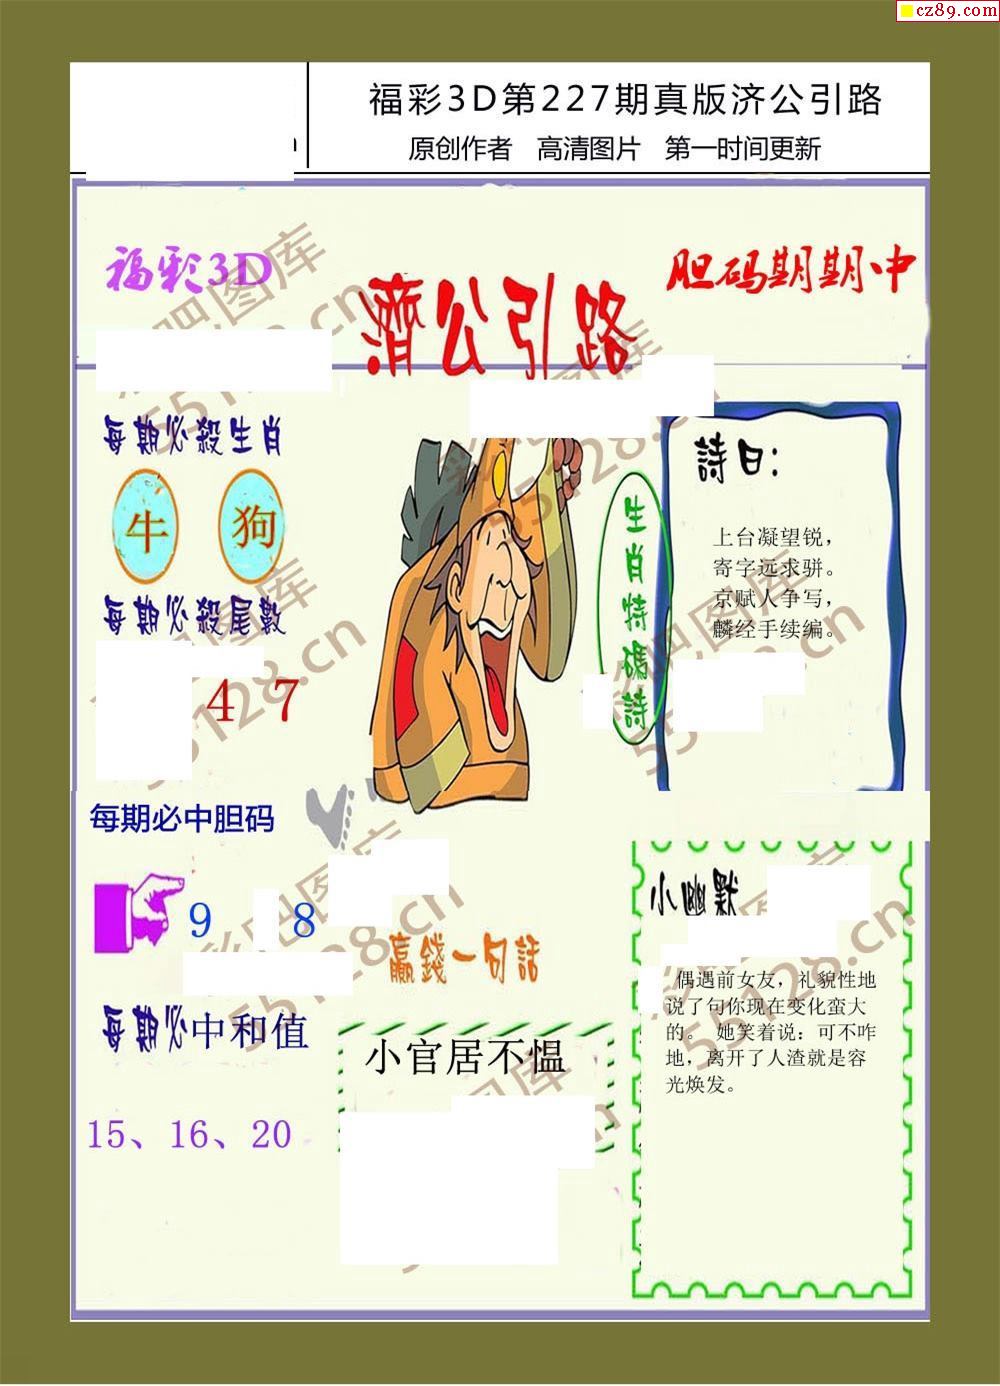 cz89.com
福彩3D第227期真版济公引路
原创作者 高清图片 第一时间更新
福彩3D
濟公引路
胆码期期中
每期必殺生肖
牛 狗
每期必殺尾數
4 7
生肖特碼詩
詩曰:
上台凝望锐，
寄字远求骈。
京赋人争写，
麟经手续编。
每期必中胆码
9 8
每期必中和值
15、16、20
贏錢一句話
小官居不愠
小幽默
偶遇前女友，礼貌性地
说了句你现在变化蛮大
的。 她笑着说：可不咋
地，离开了人渣就是容
光焕发。
彩吧图库
55128.cn
彩吧图库
55128.cn
彩吧图库
55128.cn
彩吧图库
55128.cn